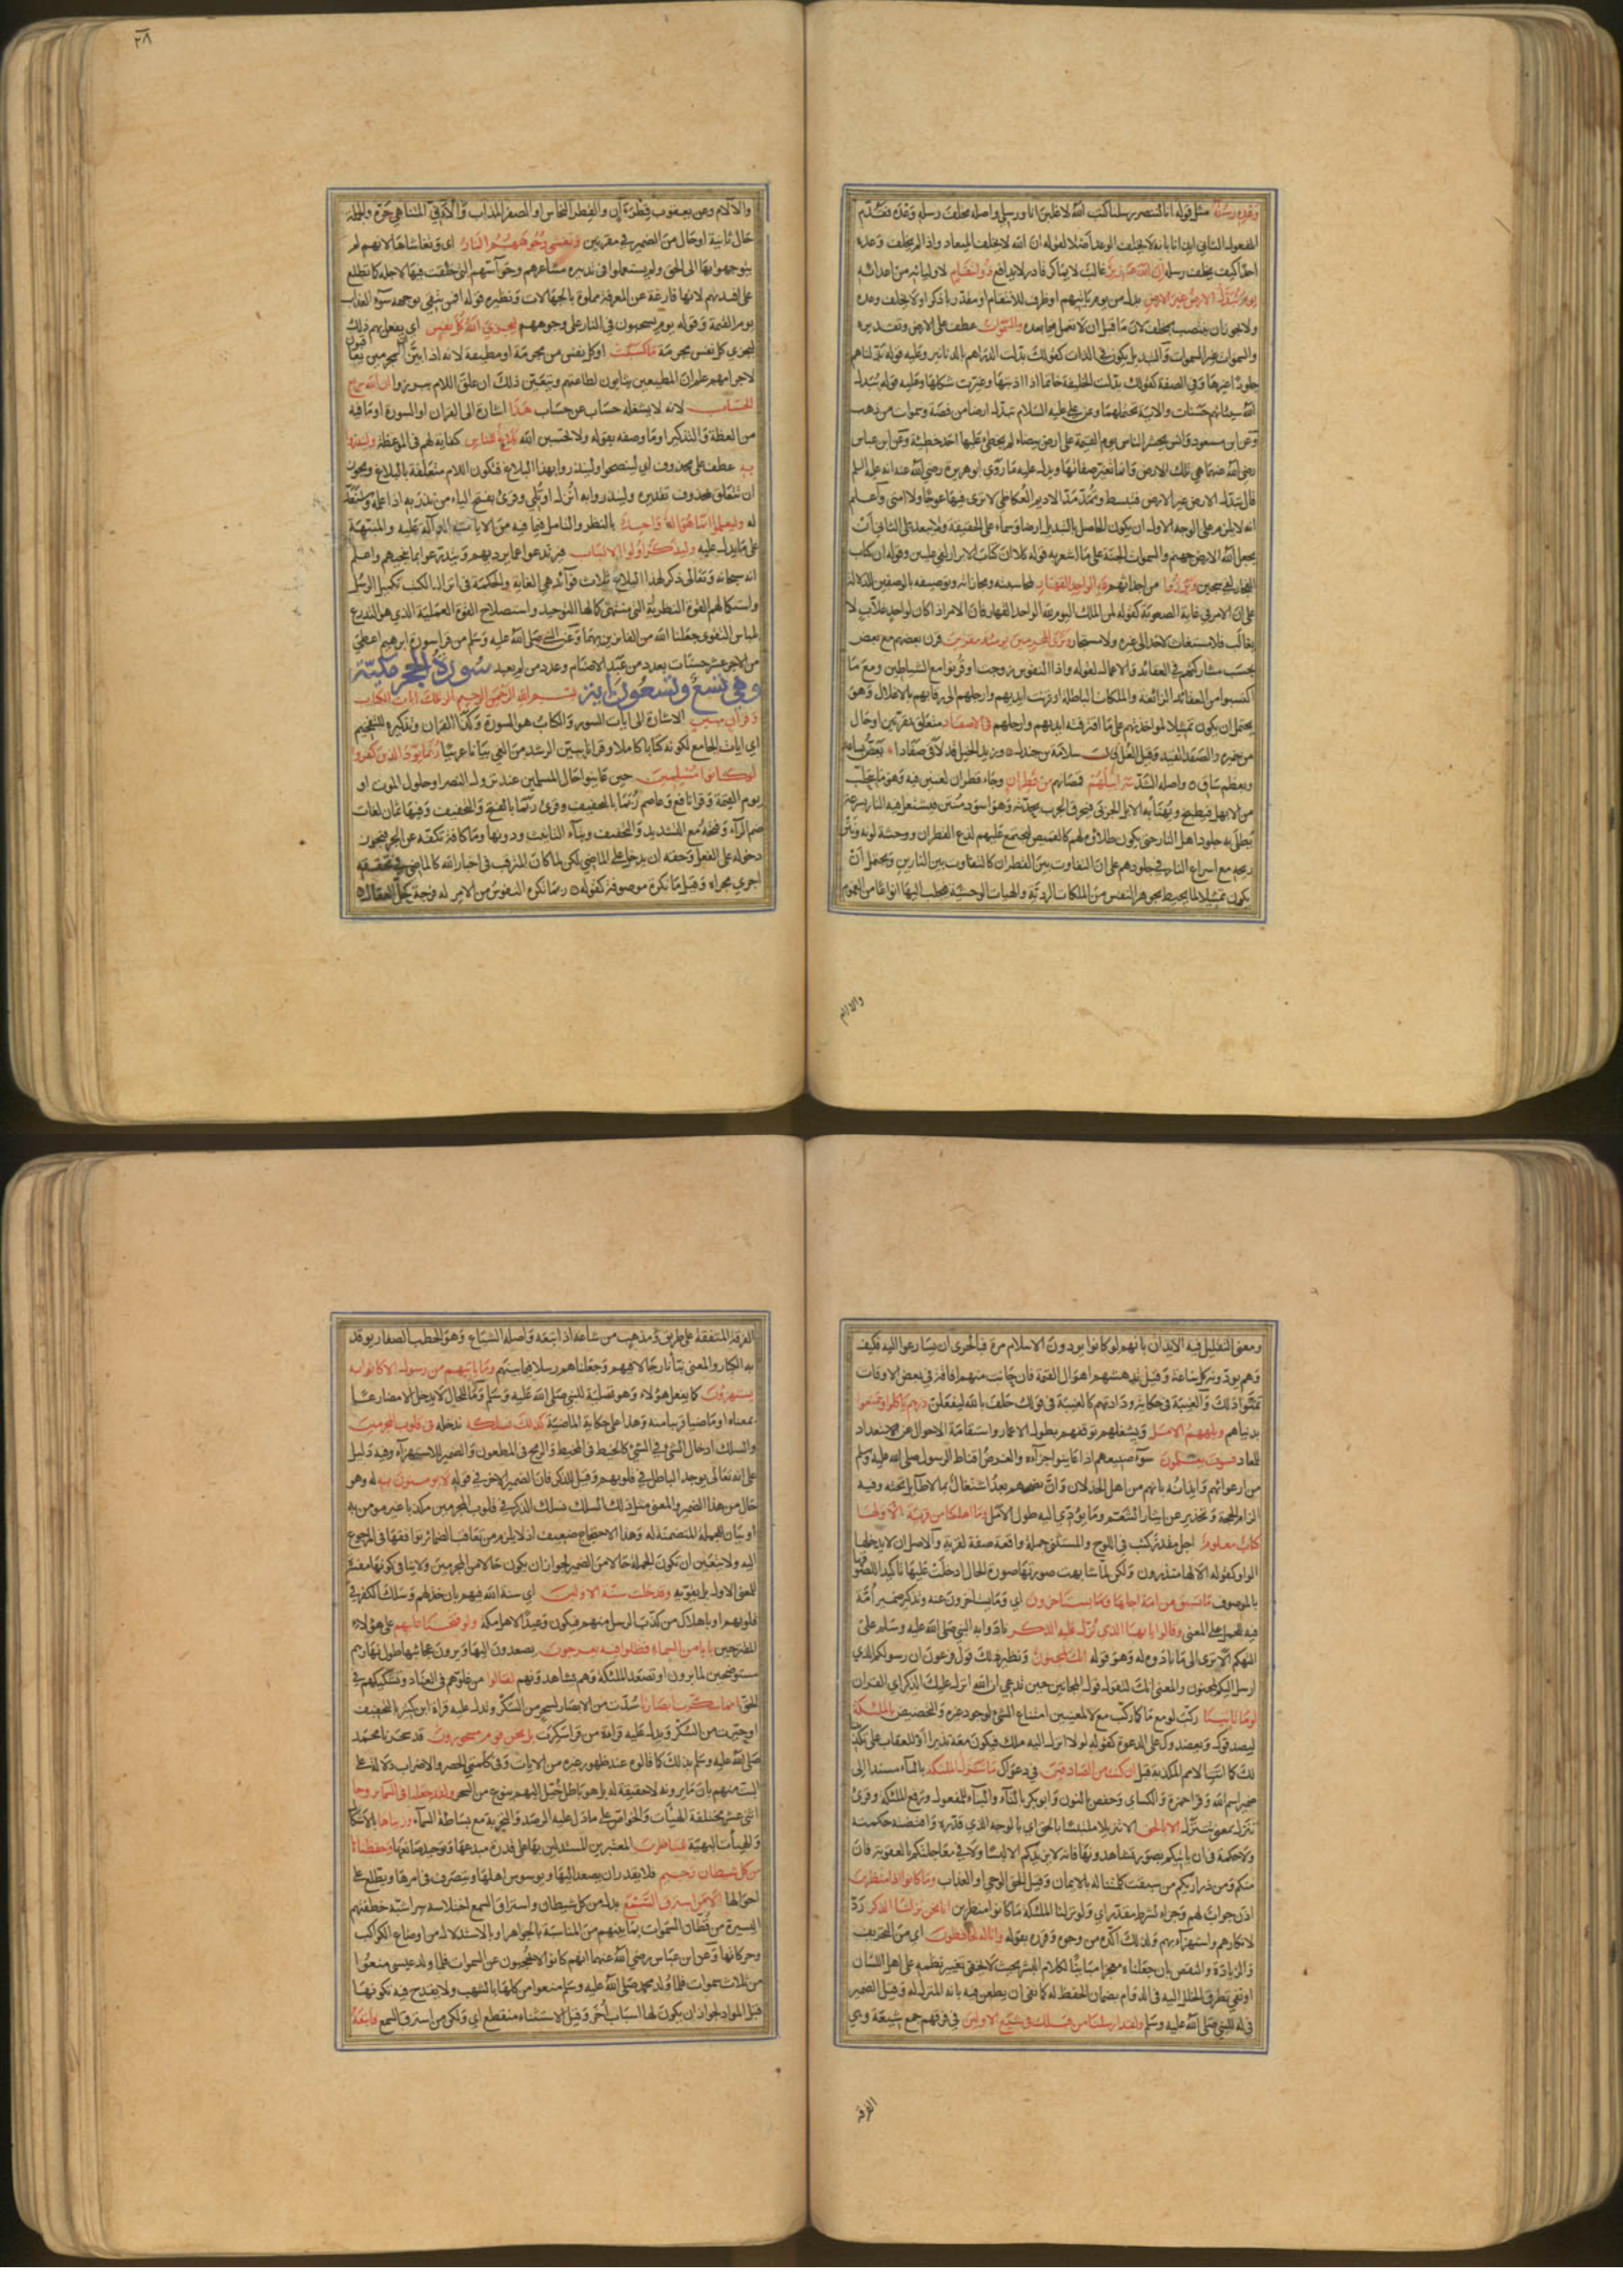 وعده رسله مثل قوله انا لننصر رسلنا كتب الله لاغلبن انا ورسلي واصله مخلف رسله وعده فقدم
المفعول الثاني ايذانا بانه لا يخلف الوعد اصلا لقوله ان الله لا يخلف الميعاد واذا لم يخلف وعده
احدا كيف يخلف رسله ان الله عزيز غالب لا يماكر قادر لا يدافع ذو انتقام لاوليائه من اعدائه
يوم تبدل الارض غير الارض بدل من يوم ياتيهم او ظرف للانتقام او مقدر باذكر او لا يخلف وعده
ولا يجوز ان ينتصب بمخلف لان ما قبل ان لا يعمل فيما بعده والسموات عطف على الارض وتقديره
والسموات غير السموات والتبديل يكون في الذات كقولك بدلت الدراهم بالدنانير وعليه قوله بدلناهم
جلودا غيرها وفي الصفة كقولك بدلت الحلقة خاتما اذا اذبتها وغيرت شكلها وعليه قوله يبدل
الله سيئاتهم حسنات والاية تحتملهما وعن علي عليه السلام تبدل ارضا من فضة وسموات من ذهب
وعن ابن مسعود وانس يحشر الناس يوم القيمة على ارض بيضاء لم يخطئ عليها احد خطيئة وعن ابن عباس
رضي الله عنهما هي تلك الارض وانما تغير صفاتها ويدل عليه ما روى ابو هريرة رضي الله عنه انه عليه السلم
قال تبدل الارض غير الارض فتبسط وتمد مد الاديم العكاظي لا ترى فيها عوجا ولا امتى واعلم
انه لا يلزم على الوجه الاول ان يكون الحاصل بالتبديل ارضا وسماء على الحقيقة ولا يبعد على الثاني ان
يجعل الله الارض جهنم والسموات الجنة على ما اشعر به قوله كلا ان كتاب الابرار لفي عليين وقوله ان كتاب
الفجار لفي سجين وبرزوا من اجداثهم لله الواحد القهار لمحاسبته ومجازاته وتوصيفه بالوصفين للدلالة
على ان الامر في غاية الصعوبة كقوله لمن الملك اليوم لله الواحد القهار فان الامر اذا كان لواحد غلاب لا
يغالب فلا مستغاث لاحد الى غيره ولا مستجار وترى المجرمين يومئذ مقرنين قرن بعضهم مع بعض
بحسب مشاركتهم في العقائد والاعمال لقوله واذا النفوس زوجت او قرنوا مع الشياطين ومع ما
اكتسبوا من العقائد الزائغة والملكات الباطلة او قرنت ايديهم وارجلهم الى رقابهم بالاغلال وهو
يحتمل ان يكون تمثيلا لمواخذتهم على ما اقترفته ايديهم وارجلهم في الاصفاد متعلق بمقرنين او حال
من ضميره والصفد القيد وقيل الغل قال سلامة بن جندل وزيد الخيل قد لاقى صفادا يعض بساعد
وبعظم ساق واصله الشد سرابيلهم قمصانهم من قطران وجاء قطران لغتين فيه وهو ما يتحلب
من الابهل فيطبخ ويهنأ به الابل الجربى فيحرق الجرب بحدته وهو اسود منتن يشتعل فيه النار بسرعة
يطلى به جلود اهل النار حتى يكون طلاؤه لهم كالقميص ليجتمع عليهم لذع القطران ووحشة لونه ونتن
ريحه مع اسراع النار في جلودهم على ان التفاوت بين القطران كالتفاوت بين النارين ويحتمل ان
يكون تمثيلا لما يحيط بجوهر النفس من الملكات الردية والهيات الوحشية فيجلب اليها انواعا من الغموم
والالام
٢٨
والالام وعن يعقوب قطرآن والقطر النحاس او الصفر المذاب والآني المتناهي حره والجملة
حال ثانية او حال من الضمير في مقرنين وتغشى وجوههم النار اى وتغشاها لانهم لم
يتوجهوا بها الى الحق ولم يستعملوا في تدبره مشاعرهم وحواسهم التي خلقت فيها لاجله كما تطلع
على افئدتهم لانها فارغة عن المعرفة مملوة بالجهالات ونظيره قوله افمن يتقي بوجهه سوء العذاب
يوم القيمة وقوله يوم يسحبون في النار على وجوههم ليجزي الله كل نفس اي يفعل بهم ذلك
ليجزي كل نفس مجرمة ما كسبت او كل نفس من مجرمة او مطيعة لانه اذا بين ان المجرمين يعاقبون
لاجرامهم علم ان المطيعين يثابون لطاعتهم ويتعين ذلك ان علق اللام ببرزوا ان الله سريع
الحساب لانه لا يشغله حساب عن حساب هذا اشارة الى القران او السورة او ما فيه
من العظة والتذكير او ما وصفه بقوله ولا تحسبن الله بلاغ للناس كفاية لهم في الموعظة ولينذروا
به عطف على محذوف اي لينصحوا ولينذروا بهذا البلاغ فتكون اللام متعلقة بالبلاغ ويجوز
ان تتعلق بمحذوف تقديره ولينذروا به انزل او تلي وقرئ بفتح الياء من نذر به اذا علمه واستعد
له وليعلموا انما هو اله واحد بالنظر والتامل فيما فيه من الايات الدالة عليه والمنبهة
على ما يدل عليه وليذكر اولوا الالباب فيرتدعوا عما يرديهم ويتدرعوا بما يحظيهم واعلم
انه سبحانه وتعالى ذكر لهذا البلاغ ثلاث فوائد هي الغاية والحكمة في انزال الكتب تكميل الرسل
واستكمالهم القوة النظرية التي منتهى كمالها التوحيد واستصلاح القوة العملية الذي هو التدرع
بلباس التقوى جعلنا الله من الفائزين بهما وعن النبي صلى الله عليه وسلم من قرا سورة ابرهيم اعطي
من الاجر عشر حسنات بعدد من عبد الاصنام وعدد من لم يعبد سورة الحجر مكية
وهي تسع وتسعون آية بسم الله الرحمن الرحيم الر تلك ايات الكتاب
وقرآن مبين الاشارة الى ايات السورة والكتاب هو السورة وكذا القران وتنكيره للتفخيم
اي ايات الجامع لكونه كتابا كاملا وقرانا يبين الرشد من الغي بيانا عربيا ربما يود الذين كفروا
لو كانوا مسلمين حين عاينوا حال المسلمين عند نزول النصر او حلول الموت او
يوم القيمة وقرا نافع وعاصم ربما بالتخفيف وقرئ ربما بالفتح والتخفيف وفيها ثمان لغات
ضم الراء وفتحه مع التشديد والتخفيف وبتاء التانيث ودونها وما كافة تكفه عن الجر فيجوز
دخوله على الفعل وحقه ان يدخل على الماضي لكن لما كان المترقب في اخبار الله كالماضي في تحققه
اجري مجراه وقيل ما نكرة موصوفة كقوله ربما تكره النفوس من الامر له فرجة كحل العقال
ومعنى التقليل فيه الايذان بانهم لو كانوا يودون الاسلام مرة فبالحرى ان يسارعوا اليه فكيف
وهم يودونه كل ساعة وقيل تدهشهم اهوال القيمة فان حانت منهم افاقة في بعض الاوقات
تمنوا ذلك والغيبة في حكاية ودادتهم كالغيبة في قولك حلف بالله ليفعلن ذرهم ياكلوا ويتمتعوا
بدنياهم ويلههم الامل ويشغلهم توقعهم بطول الاعمار واستقامة الاحوال عن الاستعداد
للمعاد فسوف يعلمون سوء صنيعهم اذا عاينوا جزاءه والغرض اقناط الرسول صلى الله عليه وسلم
من ارعوائهم وايذانه بانهم من اهل الخذلان وان نصحهم بعد اشتغال بما لا طائل تحته وفيه
الزام للحجة وتحذير عن ايثار التنعم وما يؤدي اليه طول الامل وما اهلكنا من قرية الا ولها
كتاب معلوم اجل مقدر كتب في اللوح والمستثنى جملة واقعة صفة لقرية والاصل ان لا يدخلها
الواو كقوله الا لها منذرون ولكن لما شابهت صورتها صورة الحال ادخلت عليها تاكيدا للصوقها
بالموصوف ما تسبق من امة اجلها وما يستاخرون اي وما يستاخرون عنه وتذكير ضمير امة
فيه للحمل على المعنى وقالوا يا ايها الذي نزل عليه الذكر نادوا به النبي صلى الله عليه وسلم على
التهكم الا ترى الى ما نادوه له وهو قوله انك لمجنون ونظير ذلك قول فرعون ان رسولكم الذي
ارسل اليكم لمجنون والمعنى انك لتقول قول المجانين حين تدعي ان الله انزل عليك الذكر اي القران
لو ما تاتينا ركب لو مع ما كما ركب مع لا لمعنيين امتناع الشئ لوجود غيره والتخصيص بالملئكة
ليصدقوك ويعضدوك على الدعوة كقوله لولا انزل اليه ملك فيكون معه نذيرا او للعقاب على تكذيبنا
لك كما اتت الامم المكذبة قبل ان كنت من الصادقين في دعواك ما تنزل الملئكة بالياء مسندا الى
ضمير اسم الله وقرا حمزة والكسائي وحفص بالنون وابو بكر بالتاء والبناء للمفعول ورفع الملئكة وقرئ
تنزل بمعنى تتنزل الا بالحق الا تنزيلا ملتبسا بالحق اي بالوجه الذي قدره واقتضته حكمته
ولا حكمة في ان ياتيكم بصور تشاهدونها فانه لا يزيدكم الا لبسا ولا في معاجلتكم بالعقوبة فان
منكم ومن ذراريكم من سبقت كلمتنا له بالايمان وقيل الحق الوحي او العذاب وما كانوا اذا منظرين
اذن جواب لهم وجزاء لشرط مقدر اي ولو نزلنا الملئكة ما كانوا منظرين انا نحن نزلنا الذكر رد
لانكارهم واستهزائهم ولذلك اكده من وجوه وقرره بقوله وانا له لحافظون اي من التحريف
والزيادة والنقص بان جعلناه معجزا مباينا لكلام البشر بحيث لا يخفى تغيير نظمه على اهل اللسان
او نفي تطرق الخلل اليه في الدوام بضمان الحفظ له كما نفى ان يطعن فيه بانه المنزل له وقيل الضمير
في له للنبي صلى الله عليه وسلم ولقد ارسلنا من قبلك في شيع الاولين في فرقهم جمع شيعة وهي
الفرقة
الفرقة المتفقة على طريق ومذهب من شاعه اذا تبعه واصله الشياع وهو الحطب الصغار يوقد
به الكبار والمعنى نبأنا رجالا فيهم وجعلناهم رسلا فيما بينهم وما ياتيهم من رسول الا كانوا به
يستهزؤن كما يفعل هؤلاء وهو تسلية للنبي صلى الله عليه وسلم وما للحال لا يدخل الا مضارعا
بمعناه او ماضيا قريبا منه وهذا على حكاية الماضية كذلك نسلكه ندخله في قلوب المجرمين
والسلك ادخال الشئ في الشئ كالخيط في المخيط والرمح في المطعون والضمير للاستهزاء وفيه دليل
على انه تعالى يوجد الباطل في قلوبهم وقيل للذكر فان الضمير الاخر في قوله لا يؤمنون به له وهو
حال من هذا الضمير والمعنى مثل ذلك السلك نسلك الذكر في قلوب المجرمين مكذبا غير مومن به
او بيان للجملة المتضمنة له وهذا الاحتجاج ضعيف اذ لا يلزم من تعاقب الضمائر توافقها في المرجوع
اليه ولا يتعين ان تكون الجملة حالا من الضمير لجواز ان يكون حالا من المجرمين ولا ينافي كونها مفسرة
للمعنى الاول بل يقويه وقد خلت سنة الاولين اي سنة الله فيهم بان خذلهم وسلك الكفر في
قلوبهم او باهلاك من كذب الرسل منهم فيكون وعيدا لاهل مكة ولو فتحنا عليهم على هؤلاء
المقترحين بابا من السماء فظلوا فيه يعرجون يصعدون اليها ويرون عجائبها طول نهارهم
مستوضحين لما يرون او تصعد الملئكة وهم يشاهدونهم لقالوا من غلوهم في العناد وتشكيكهم في
الحق انما سكرت ابصارنا سدت من الابصار لسحر من السكر ويدل عليه قراءة ابن كثير بالتخفيف
او حيرت من السكر ويدل عليه قراءة من قرا سكرت بل نحن قوم مسحورون قد سحرنا محمد
صلى الله عليه وسلم بذلك كما قالوه عند ظهور غيره من الايات وفي كلمتي الحصر والاضراب دلالة على
البت منهم بان ما يرونه لا حقيقة له بل هو باطل خيل اليهم بنوع من السحر ولقد جعلنا في السماء بروجا
اثنى عشر مختلفة الهيئات والخواص على ما دل عليه الرصد والتجربة مع بساطة السماء وزيناها بالاشكال
والهيئات البهية للناظرين المعتبرين المستدلين بها على قدرة مبدعها وتوحيد صانعها وحفظناها
من كل شيطان رجيم فلا يقدر ان يصعد اليها ويوسوس اهلها ويتصرف في امرها ويطلع على
احوالها الا من استرق السمع بدل من كل شيطان واستراق السمع اختلاسه سرا شبه خطفتهم
اليسيرة من قطان السموات بما بينهم من المناسبة بالجواهر او بالاستدلال من اوضاع الكواكب
وحركاتها وعن ابن عباس رضي الله عنهما انهم كانوا لا يحجبون عن السموات فلما ولد عيسى منعوا
من ثلاث سموات فلما ولد محمد صلى الله عليه وسلم منعوا من كلها بالشهب ولا يقدح فيه تكونها
قبل المولد لجواز ان يكون لها اسباب اخر وقيل الاستثناء منقطع اي ولكن من استرق السمع فاتبعه